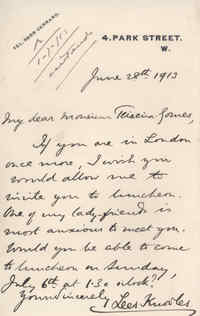 TEL. 5988 GERRARD.
4. PARK STREET.
W.
June 28th 1913
My dear Monsieur Teixeira Gomes,
If you are in London
once more, I wish you
would allow me to
invite you to luncheon.
One of my lady friends is
most anxious to meet you.
Would you be able to come
to luncheon on Sunday,
July 6th at 1.30 o'clock?
Yours sincerely
Lees Knowles.